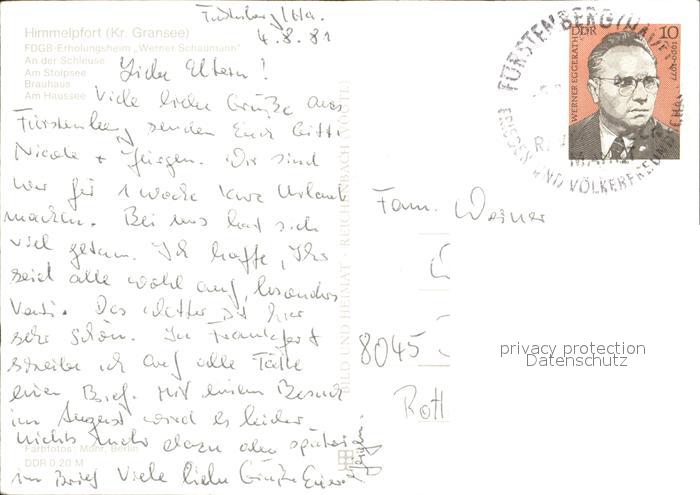 Fürstenberg/Ha.
4.8.81
Himmelpfort (Kr. Gransee)
FDGB-Erholungsheim „Werner Schaumann"
An der Schleuse
Am Stolpsee
Brauhaus
Am Haussee
Liebe Eltern!
Viele liebe Grüße aus
Fürstenberg senden Euch
Nicole + Jürgen. Wir sind
nur für 1 Woche kurz Urlaub
machen. Bei uns hat sich
viel getan. Ich hoffe, Ihr
seid alle wohl auf, besonders
Das Wetter ist hier
sehr schön. In Frankfurt
schreibe ich auf alle Fälle
einen Brief. Mit einem Besuch
im August wird es leider
nichts mehr dazu aber später
im Brief Viele liebe Grüße Euer
Jürgen
Farbfotos: Mohr, Berlin
DDR 0,20 M
BILD UND HEIMAT · REICHENBACH (VOGTL)
FÜRSTENBERG (HAVEL)
FRIEDEN UND VÖLKERFREUNDSCHAFT
WERNER EGGERATH
1900-1977
DDR 10
Fam. Weiner
8045
Rott
privacy protection
Datenschutz